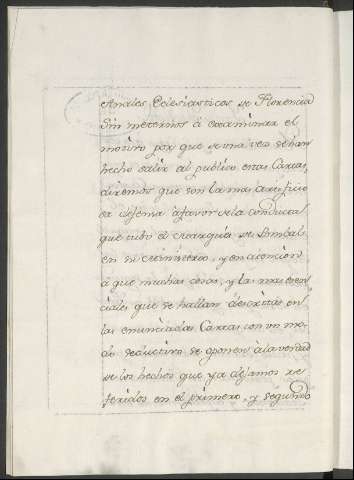 Anales Eclesiasticos de Florencia
Sin meternos á examinar el
motivo por que de una vez se han
hecho salir al publico estas Cartas,
diremos que son la mas artificio
sa defensa á favor de la conducta
que tubo el
en su ministerio, y en atencion
á que muchas cosas, y las mas esen
ciales que se hallan descritas en
las enunciadas Cartas con un mo-
do seductivo se oponen á la verdad
de los hechos que ya dejamos re
feridos en el primero, y segundo